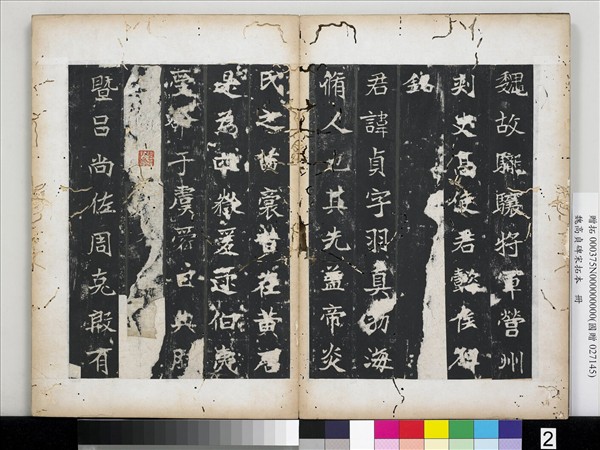 魏故龍驤將軍營州
刺史高使君懿侯碑
銘
君諱貞字羽真勃海
脩人也其先蓋帝炎
氏之苗裔昔在黄唐
是為四嶽爰逮伯夷
受命于虞爵曰典朕
暨呂尚佐周克殷有
贈拓 000375N000000000(國贈 027145)
魏高貞碑宋拓本 冊
2